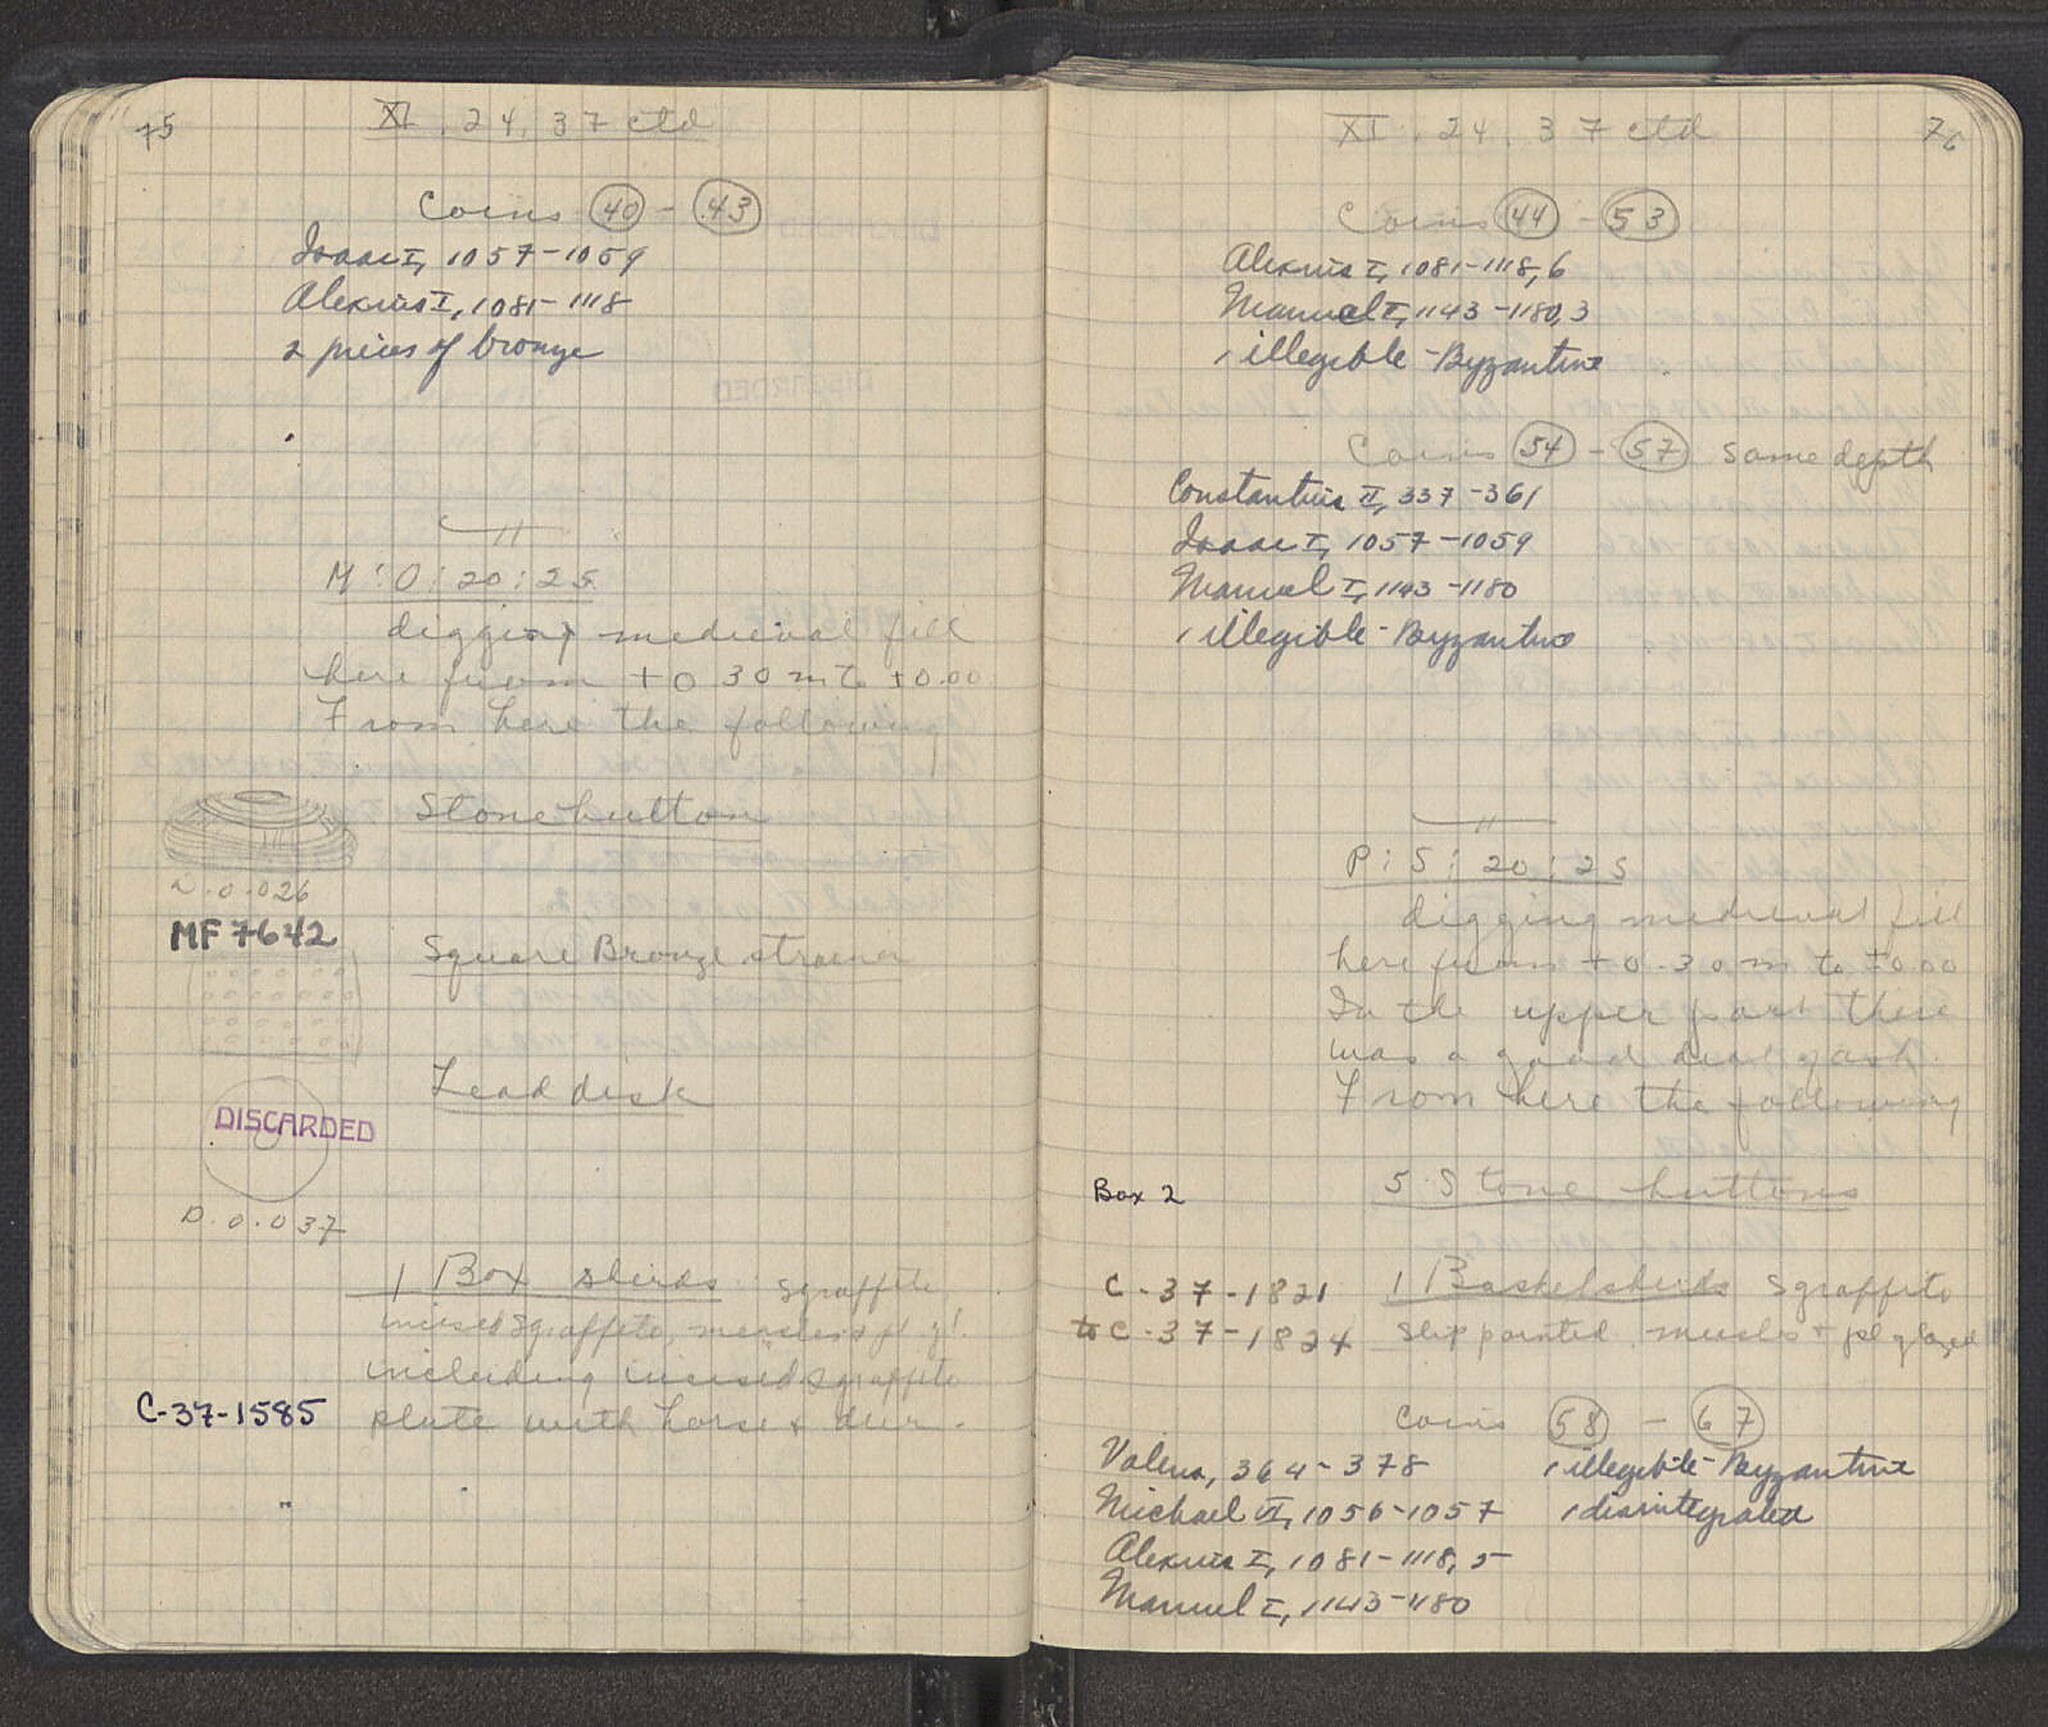 75
XI . 24 . 37 ctd
Coins 40 - 43
Isaac I, 1057-1059
Alexius I, 1081-1118
2 pieces of bronze
M : O : 20 : 25
digging medieval fill
here from +0 30 m to ±0.00
From here the following
Stone button
D. 0.026
MF 7642
Square Bronze strainer
Lead disk
DISCARDED
D. 0.037
1 Box sherds sgraffito
incised sgraffito,
including incised sgraffito
C-37-1585 plate with horse + deer.
XI . 24 . 37 ctd
76
Coins 44 - 53
Alexius I, 1081-1118, 6
Manuel I, 1143-1180, 3
1 illegible-Byzantine
Coins 54 - 57 same depth
Constantius II, 337-361
Isaac I, 1057-1059
Manuel I, 1143-1180
1 illegible-Byzantine
P : S : 20 : 25
digging medieval fill
here from +0.30 m to ±0.00
In the upper part there
was a good deal of ash.
From here the following
Box 2 5 Stone buttons
C-37-1821 1 Basket sherds sgraffito
to C-37-1824 slip painted + glazed
Coins 58 - 67
Valens, 364-378 1 illegible-Byzantine
Michael VI, 1056-1057 1 disintegrated
Alexius I, 1081-1118, 5
Manuel I, 1143-1180